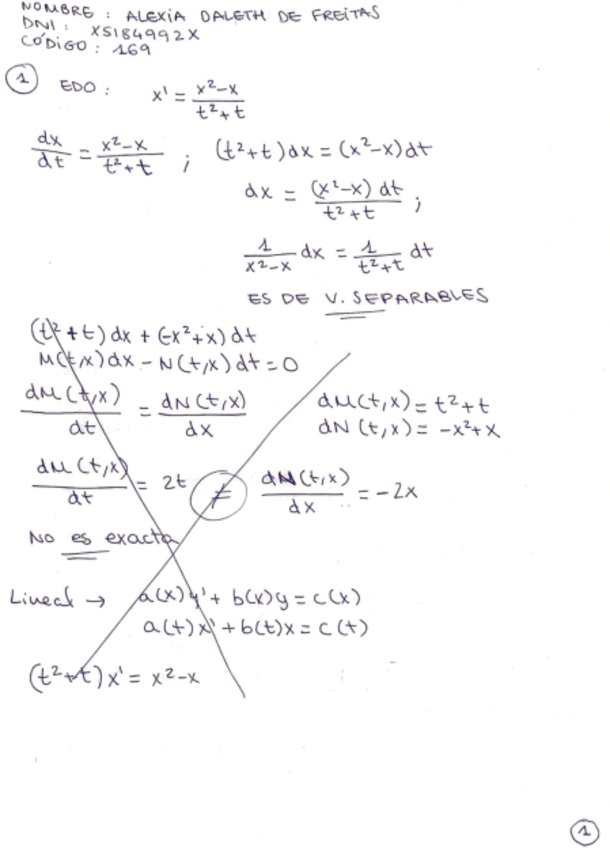 NOMBRE : ALEXIA DALETH DE FREITAS
DNI : X5184992X
CÓDIGO : 169
1 EDO : x' = x²-x / t²+t
dx/dt = x²-x / t²+t ; (t²+t)dx = (x²-x)dt
dx = (x²-x) dt / t²+t ;
1 / x²-x dx = 1 / t²+t dt
ES DE V. SEPARABLES
(t²+t) dx + (-x²+x) dt
M(t,x)dx - N(t,x)dt = 0
dM(t,x) / dt = dN(t,x) / dx
dM(t,x) = t²+t
dN(t,x) = -x²+x
dM(t,x) / dt = 2t ≠ dN(t,x) / dx = -2x
NO es exacta
Lineal → a(x)y' + b(x)y = c(x)
a(t)x' + b(t)x = c(t)
(t²+t)x' = x²-x
1